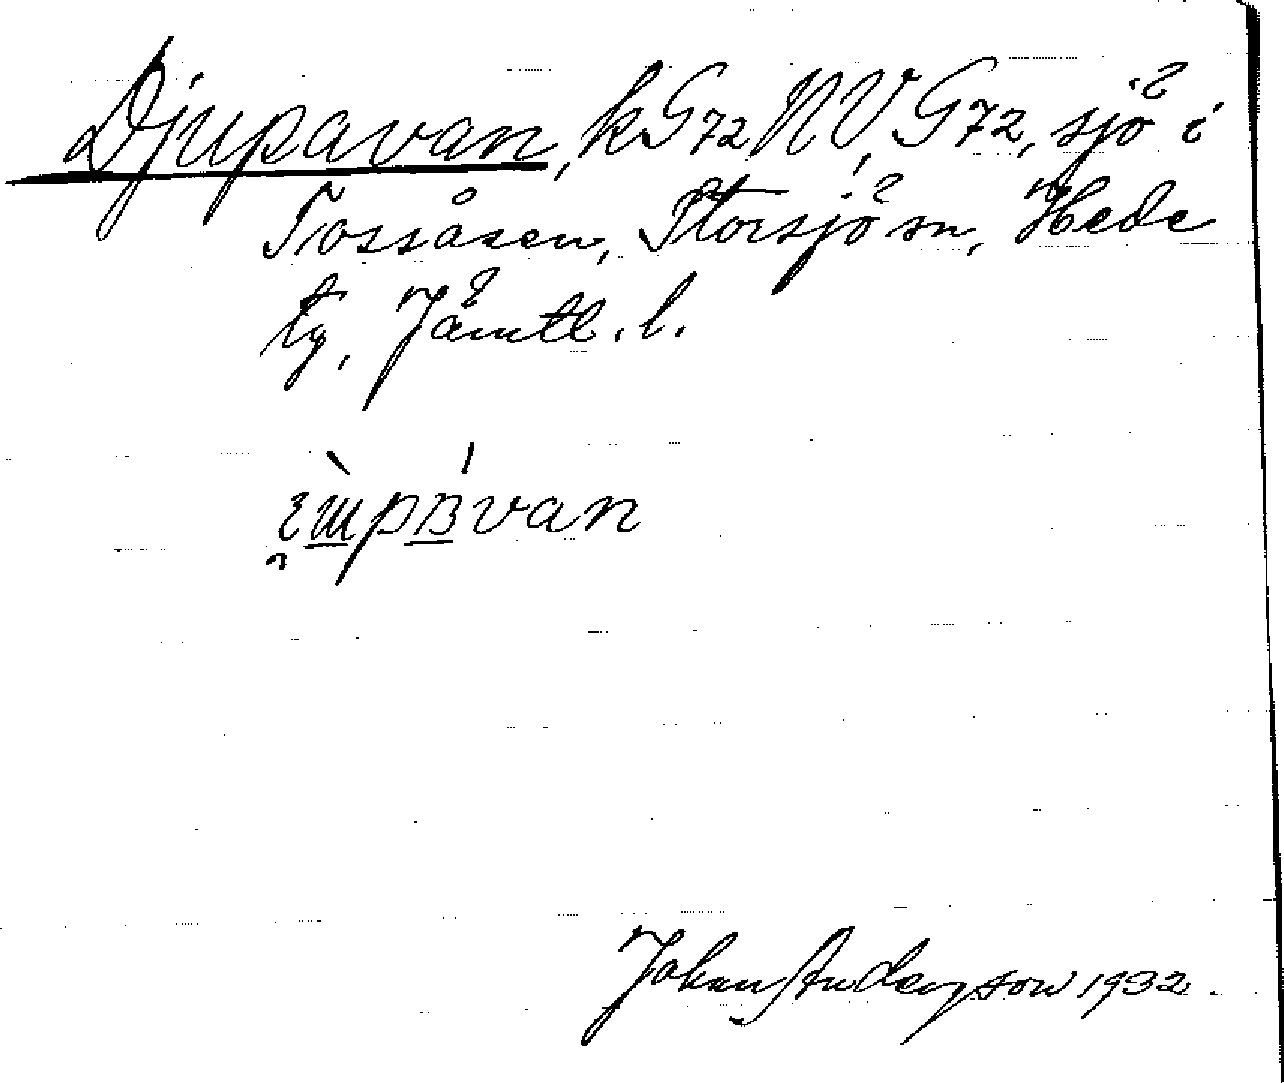 Djupavan, kG72NV, G72, sjö i
Tossåsen, Storsjö sn, Hede
tg, Jämtl. l.
Johan Andersson 1932.